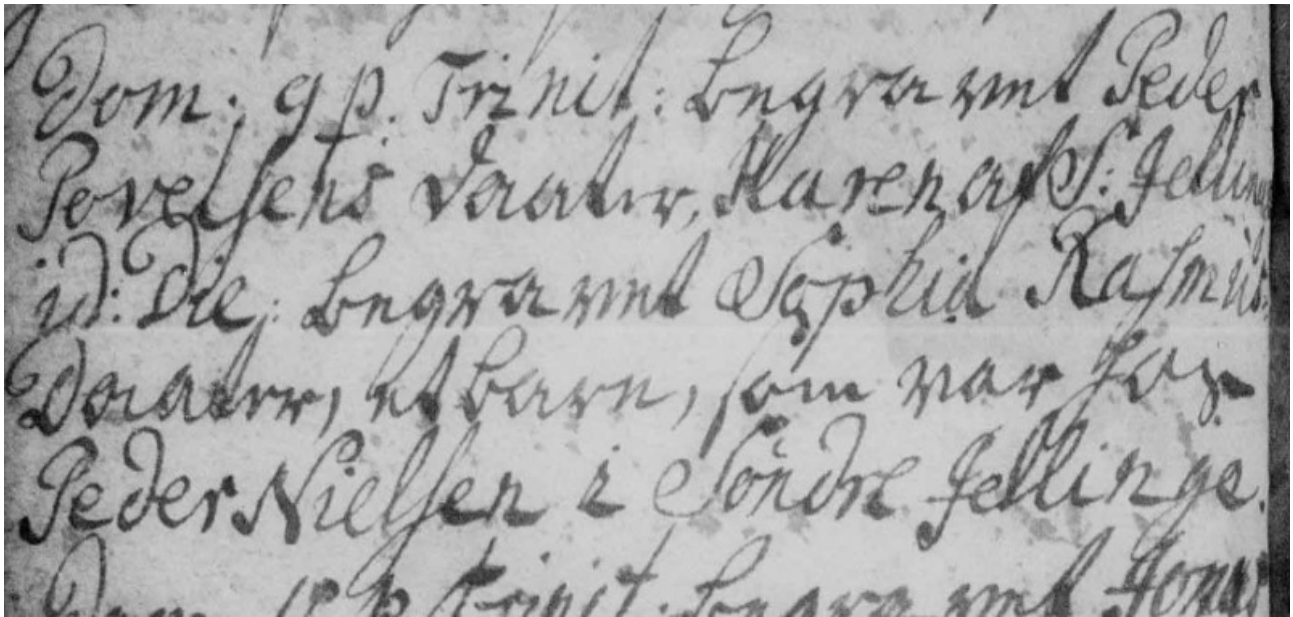 Dom: 9 p. Trinit: begravet Peder
Povelsens Daater, Karen af S: Jelling
id: Die: begravet Sophia Rasmus
Daater, et barn, som var hos
Peder Nielsen i Söndre Jellinge.
Dom p Trinit: begravet Jonas